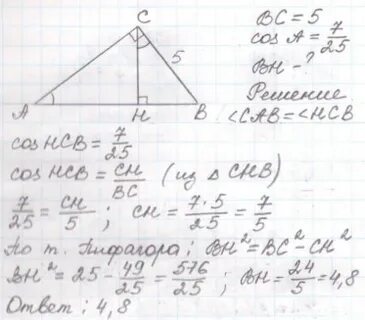 C
BC = 5
cos A = 7/25
5
BH - ?
Решение
A H B
<CAB = <HCB
cos HCB = 7/25
cos HCB = CH/BC (из △ CHB)
7/25 = CH/5 ; CH = 7·5/25 = 7/5
По т. Пифагора ; BH² = BC² - CH²
BH² = 25 - 49/25 = 576/25 ; BH = 24/5 = 4,8
Ответ : 4,8